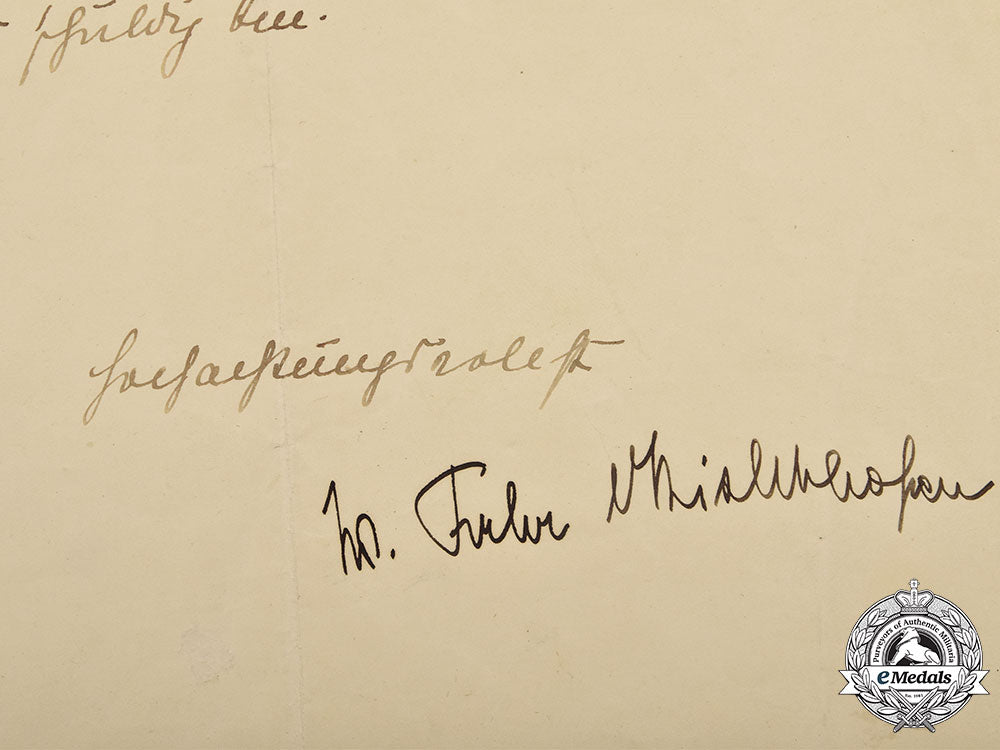 schuldig bin.
hochachtungsvollst
Frhr
Purveyors of Authentic Militaria
eMedals
Est. 1985